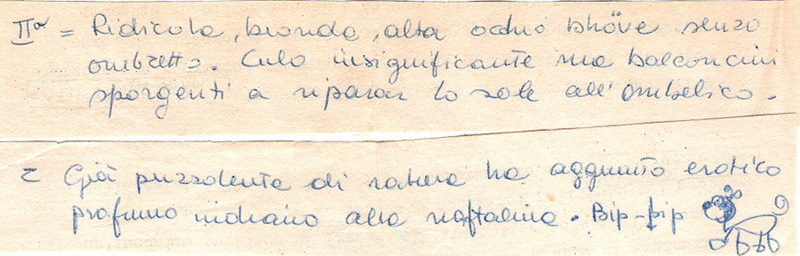 IIa = Ridicola, bionda, alta occhi bhöve senza
ombretto. Culo insignificante ma balconcini
sporgenti a riparar lo sole all'ombelico.
= Già puzzolente di natura ha aggiunto erotico
profumo indiano alla naftalina. Bip-bip